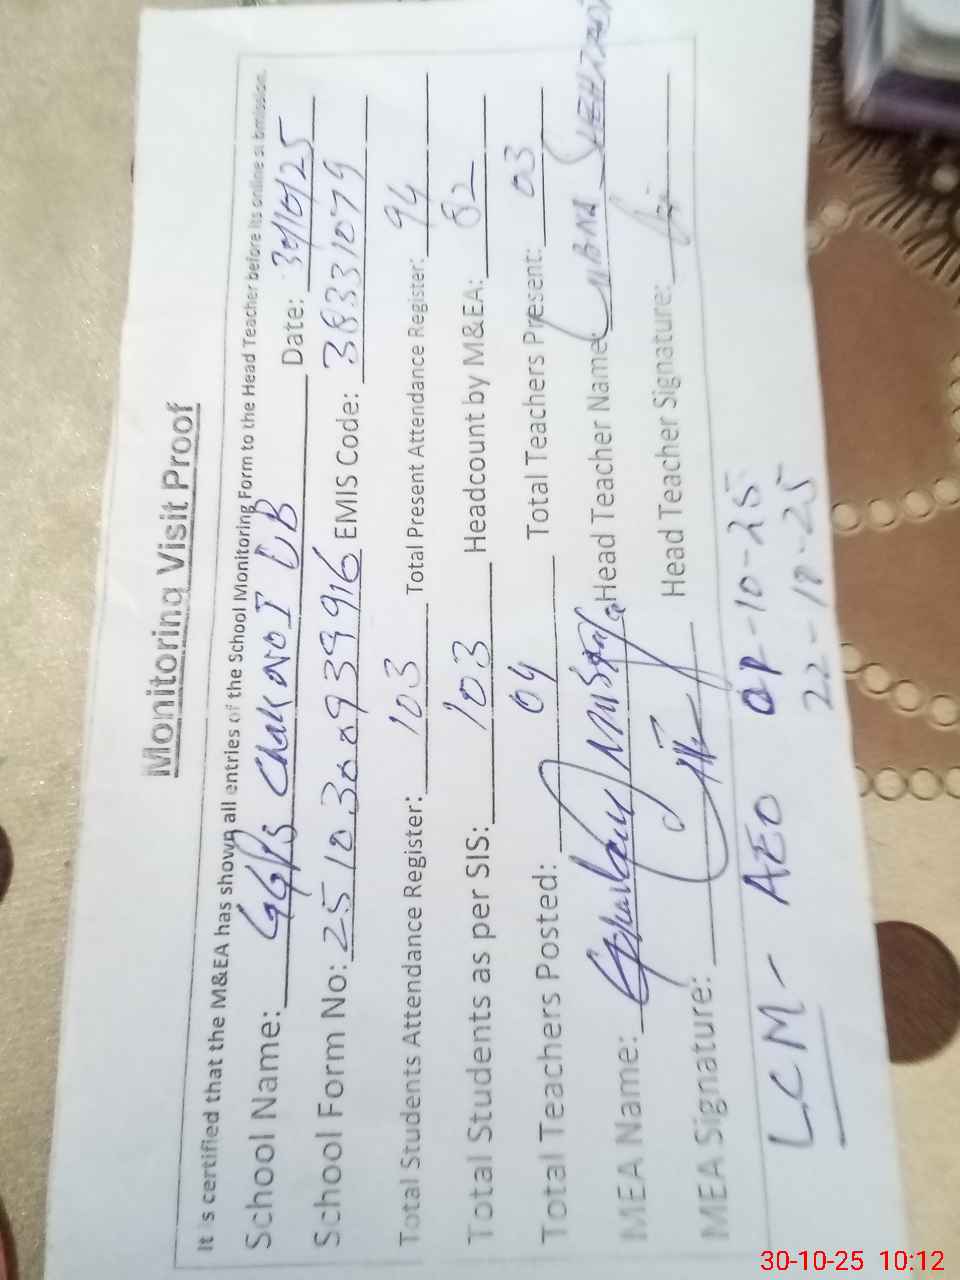 Monitoring Visit Proof
It is certified that the M&EA has shown all entries of the School Monitoring Form to the Head Teacher before its online submission.
School Name: GGPS Chak No 1 DB Date: 30/10/25
School Form No: 25103009939916 EMIS Code: 38331079
Total Students Attendance Register: 103 Total Present Attendance Register: 94
Total Students as per SIS: 103 Headcount by M&EA: 82
Total Teachers Posted: 04 Total Teachers Present: 03
MEA Name: Ghulam Head Teacher Name: LUBNA SHEHZADI
MEA Signature: Head Teacher Signature:
LCM - AEO 07-10-25
22-10-25
30-10-25 10:12